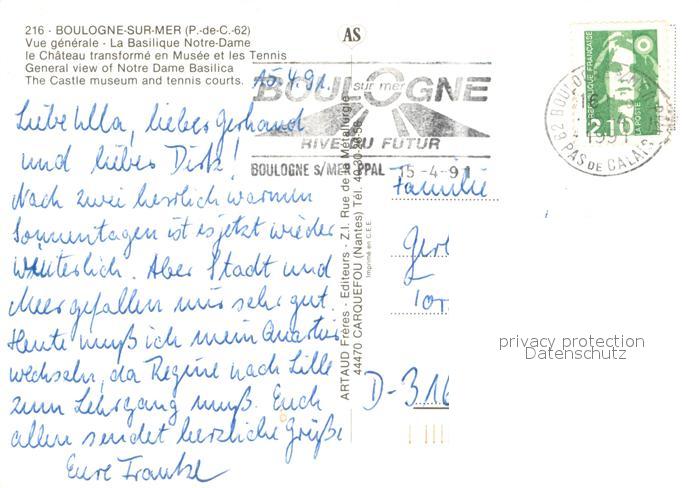 216 - BOULOGNE-SUR-MER (P.-de-C.-62)
Vue générale - La Basilique Notre-Dame
le Château transformé en Musée et les Tennis
General view of Notre Dame Basilica
The Castle museum and tennis courts.
AS
15.4.91.
Liebe Ulla, lieber Gerhard
und lieber Dirk!
Nach zwei herrlich warmen
Sonnentagen ist es jetzt wieder
winterlich. Aber Stadt und
Meer gefallen mir sehr gut.
Heute muß ich mein Quartier
wechseln, da Regine nach Lille
zum Lehrgang muß. Euch
allen sendet herzliche Grüße
Eure Frauke
BOULOGNE
sur mer
RIVE DU FUTUR
BOULOGNE S/MER PPAL 15-4-91
ARTAUD Frères - Editeurs - Z.I. Rue de la Métallurgie
44470 CARQUEFOU (Nantes) Tél. 40.30
Imprimé en C.E.E.
REPUBLIQUE FRANÇAISE
2,10
LA POSTE
62 BOULOGNE
16
1991
PAS DE CALAIS
Familie
Ger
D-316
privacy protection
Datenschutz